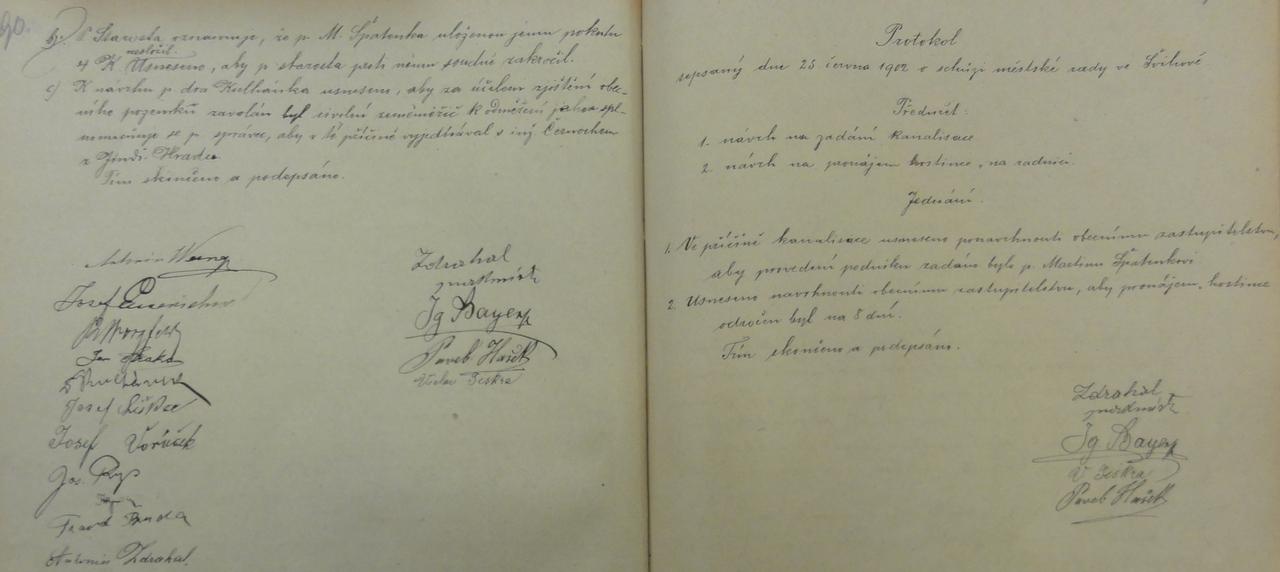 90.
b) Starosta oznamuje, že p. M. Špatenka uloženou jemu pokutu
nesložil.
Usneseno, aby p. starosta proti němu soudně zakročil.
c) K návrhu p. dra Kulhánka usneseno, aby za účelem zjištění obec-
ního pozemků zavolán byl civilní zeměměřič k odměření jehož spl-
nomocňuje se p. správce, aby v té příčině vyjednával s inž. Černochem
z Jindř. Hradce
Tím skončeno a podepsáno.
Antonín
Josef
Jan
Dr Kulhánek
Josef Liška
Josef Voráček
Jos. Rys
Frant. Bruda
Antonín Zdrahal.
Zdrahal
Ig Bayer
Pavel Hašek
Václav Jiskra
Protokol
sepsaný dne 25 června 1902 o schůzi městské rady ve
Předmět:
1. návrh na zadání kanalisace
2. návrh na pronájem hostince „na radnici.
Jednání.
1. Ve příčině kanalisace usneseno ponavrhnouti obecnímu zastupitelstvu,
aby provedení podniku zadáno bylo p. Martinu Špatenkovi.
2. Usneseno navrhnouti obecnímu zastupitelstvu, aby pronájem hostince
odročen byl na 8 dní.
Tím skončeno a podepsáno.
Zdrahal
Ig Bayer
V Jiskra
Pavel Hašek